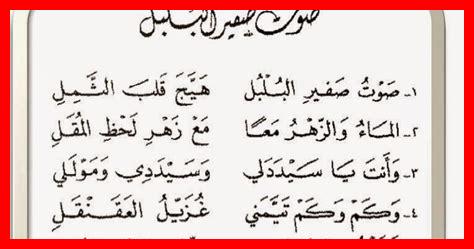 صوت صفير البلبل
١- صَوْتُ صَفِيرِ البُلْبُلِ هَيَّجَ قَلْبَ الثَّمِلِ
٢- المَاءُ وَالزَّهْرُ مَعًا مَعْ زَهْرِ لَحْظِ المُقَلِ
٣- وَأَنتَ يَا سَيِّدَدَلي وَسَيْدَدِي وَمَوْلَلي
٤- وَكَمْ وَكَمْ تَيَّمَني غُزَيِّلُ العَقَنْقَلِ